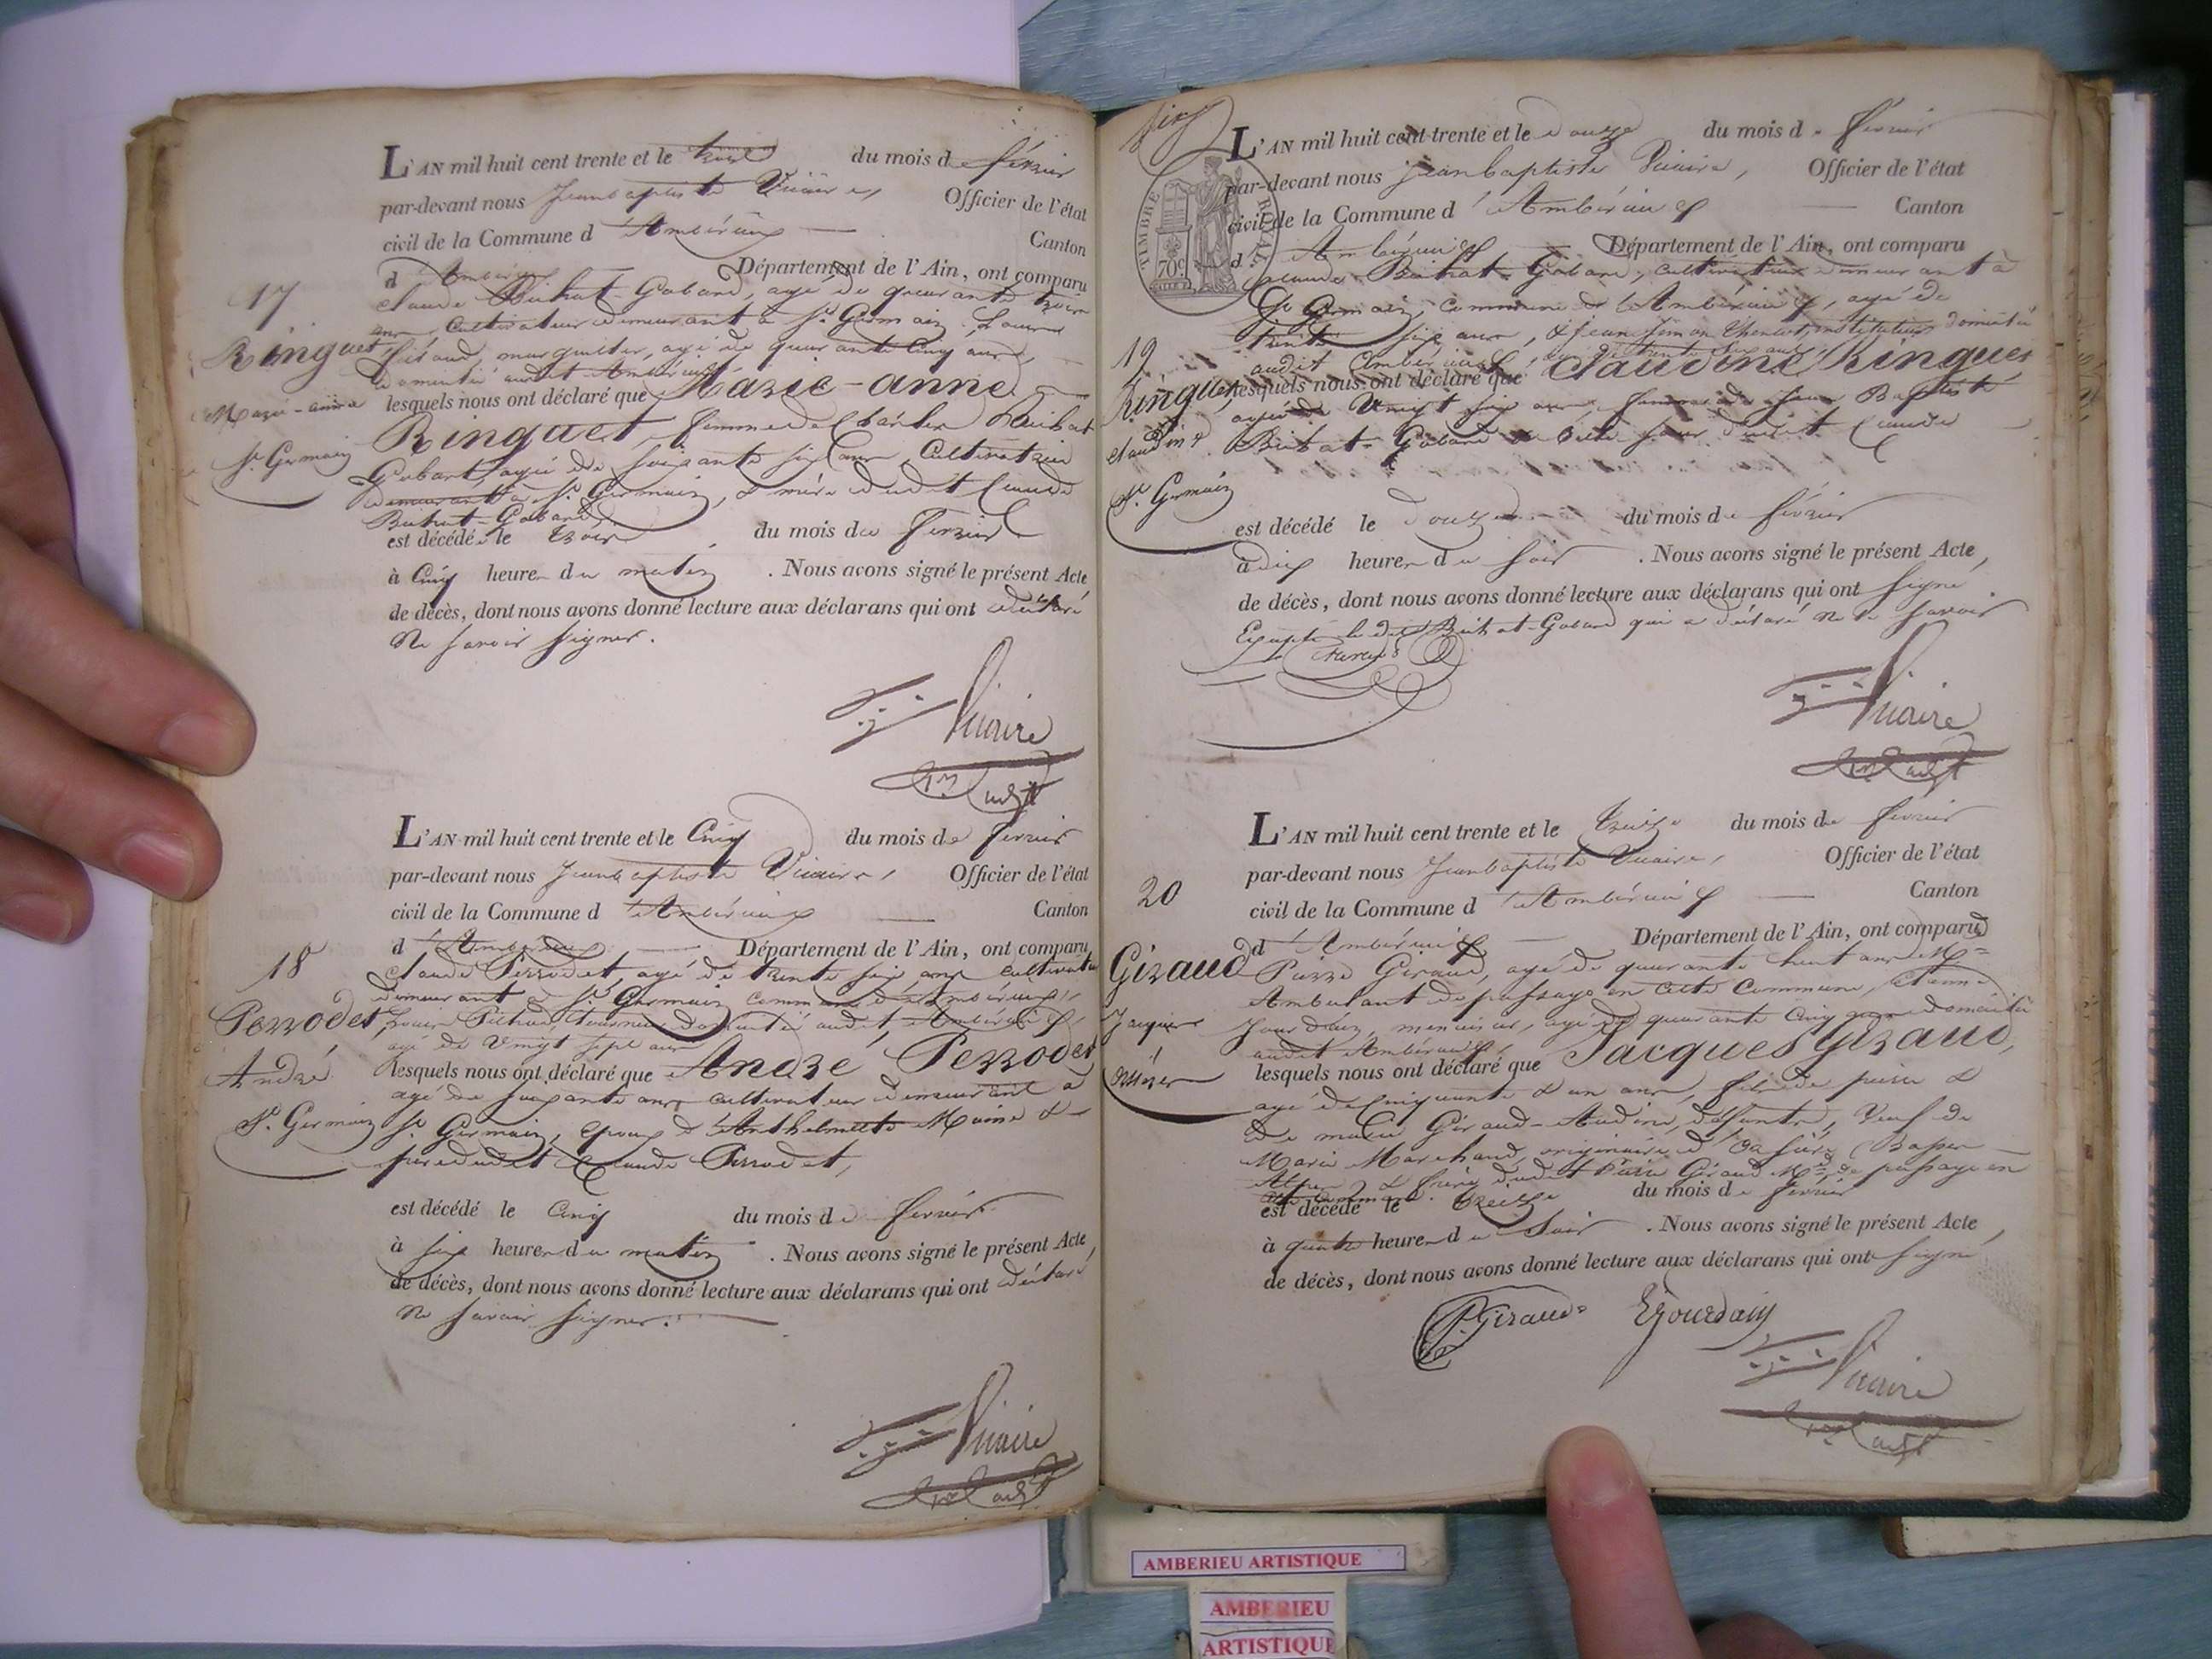 17
Ringuet
Marie-anne
St. Germain
L'AN mil huit cent trente et le trois du mois de février
par-devant nous Jeanbaptiste Vicaire, Officier de l'état
civil de la Commune d'Ambérieux Canton
d'Ambérieux Département de l'Ain, ont comparu
claude Buhat-Gobard, agé de quarante trois
ans, Cultivateur demeurant à St. Germain, & Louis
marguiller, agé de quarante Cinq ans,
domicilié audit Ambérieux
lesquels nous ont déclaré que Marie-anne
Ringuet, femme de Charles Buhat
Gobart, agée de soixante six ans, Cultivatrice
demeurant à St. Germain, & mère dudit Claude
Buhat-Gobard,
est décédée le trois du mois de Fevrier
à Cinq heures du matin. Nous avons signé le présent Acte
de décès, dont nous avons donné lecture aux déclarans qui ont déclaré
Ne savoir signer.
Vicaire
18
Perrodet
André
St. Germain
L'AN mil huit cent trente et le Cinq du mois de fevrier
par-devant nous Jeanbaptiste Vicaire, Officier de l'état
civil de la Commune d'Ambérieux Canton
d'Ambérieux Département de l'Ain, ont comparu
claude Perrodet, agé de trente six ans cultivateur
demeurant à St. Germain commune d'Ambérieux,
Louis domicilié audit Ambérieux,
agé de Vingt sept ans
lesquels nous ont déclaré que André Perrodet
agé de soixante ans cultivateur demeurant à
St. Germain, epoux d'Anthelmette Moine &
pere dudit Claude Perrodet,
est décédé le Cinq du mois de fevrier
à six heures du matin. Nous avons signé le présent Acte,
de décès, dont nous avons donné lecture aux déclarans qui ont déclaré
Ne savoir signer.
Vicaire
TIMBRE ROYAL
70c
19
Ringuet
claudine
St. Germain
L'AN mil huit cent trente et le douze du mois de février
par-devant nous jeanbaptiste Vicaire, Officier de l'état
civil de la Commune d'Ambérieux Canton
d'Ambérieux Département de l'Ain, ont comparu
claude Buhat-Gobard, cultivateur demeurant à
St. Germain, commune d'Ambérieux, agé de
trente six ans, & jean simon instituteur domicilié
audit Ambérieux, agé de trente six ans
lesquels nous ont déclaré que Claudine Ringuet
agée de Vingt six ans, femme de jean Baptiste
Buhat-Gobard & belle soeur dudit Claude
est décédé le Douze du mois de février
à dix heures du soir. Nous avons signé le présent Acte,
de décès, dont nous avons donné lecture aux déclarans qui ont signé
Excepté le dit Buhat-Gobard qui a déclaré Ne le savoir
Vicaire
20
Giraud
Jacques
L'AN mil huit cent trente et le treize du mois de fevrier
par-devant nous Jeanbaptiste Vicaire, Officier de l'état
civil de la Commune d'Ambérieux Canton
d'Ambérieux Département de l'Ain, ont comparu
Pierre Giraud, agé de quarante huit ans Md
Ambulant de passage en cette Commune, Etienne
Jourdain, menuisier, agé de quarante Cinq ans domicilié
audit Ambérieux,
lesquels nous ont déclaré que Jacques Giraud,
agé de Cinquante & un ans, fils de pierre &
de marie Giraud-Audine, défunts, Veuf de
Marie Marchand, originaire d'
Alpes) & frère dudit Pierre Giraud Md de passage en
cette commune.
est décédé le treize du mois de fevrier
à quatre heures du Soir. Nous avons signé le présent Acte,
de décès, dont nous avons donné lecture aux déclarans qui ont signé
P. Giraud E Jourdain
Vicaire
AMBERIEU ARTISTIQUE
AMBERIEU
ARTISTIQUE